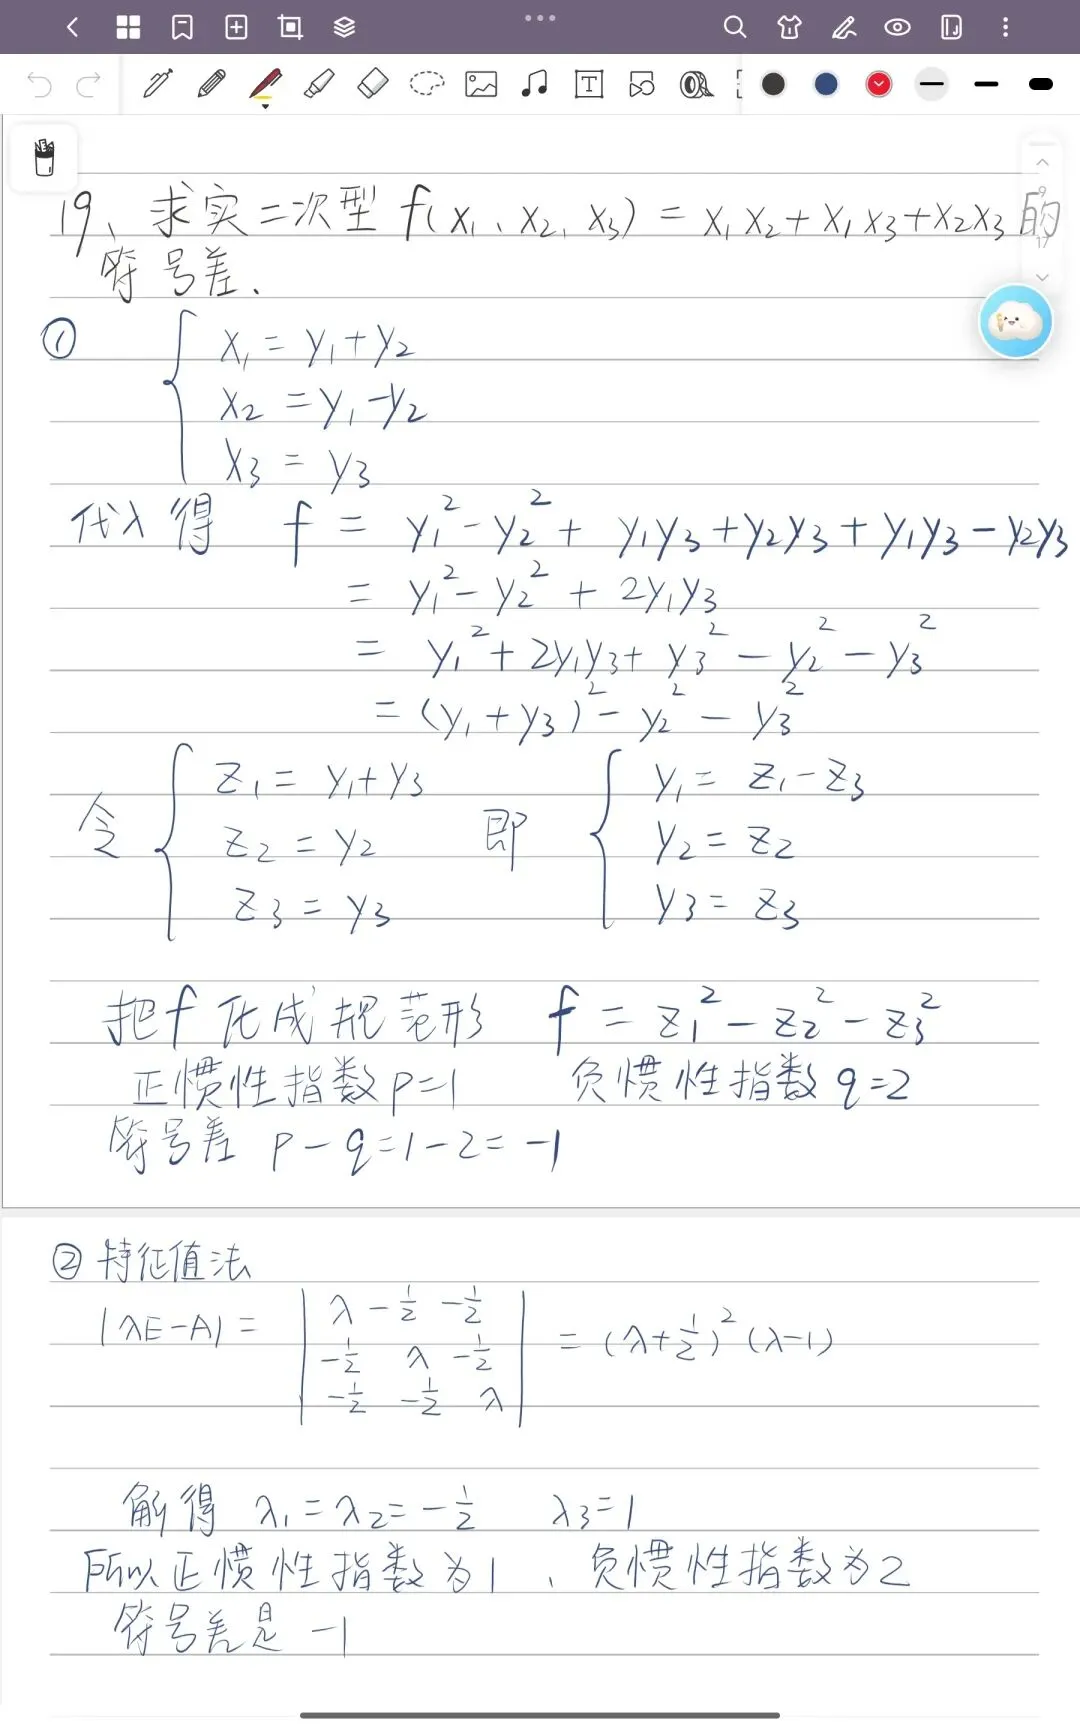 19、求实二次型 f(x₁、x₂, x₃) = x₁x₂+x₁x₃+x₂x₃ 的
符号差.
① { x₁ = y₁+y₂
x₂ = y₁-y₂
x₃ = y₃
代入得 f = y₁²-y₂² + y₁y₃+y₂y₃+y₁y₃-y₂y₃
= y₁²-y₂² + 2y₁y₃
= y₁²+2y₁y₃+y₃²-y₂²-y₃²
= (y₁+y₃)²-y₂²-y₃²
令 { z₁ = y₁+y₃ 即 { y₁ = z₁-z₃
z₂ = y₂ y₂ = z₂
z₃ = y₃ y₃ = z₃
把f化成规范形 f = z₁²-z₂²-z₃²
正惯性指数p=1 负惯性指数q=2
符号差 p-q=1-2=-1
② 特征值法
|λE-A| = | λ -1/2 -1/2 | = (λ+1/2)²(λ-1)
-1/2 λ -1/2
-1/2 -1/2 λ
解得 λ₁=λ₂=-1/2 λ₃=1
所以正惯性指数为1、负惯性指数为2
符号差是 -1